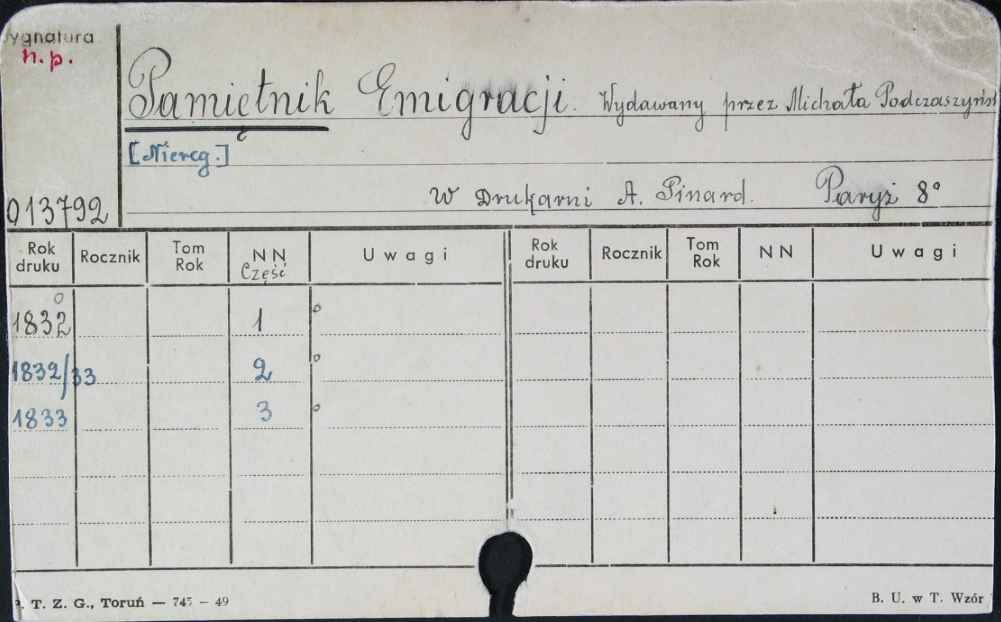 ygnatura
n.p.
Pamiętnik Emigracji. Wydawany przez Michała Podczaszyńs
[Niereg.]
013792 W Drukarni A. Pinard. Paryż 8°
Rok druku Rocznik Tom Rok NN Część Uwagi Rok druku Rocznik Tom Rok NN Uwagi
1832 1
1832/33 2
1833 3
. T. Z. G., Toruń — 745 – 49 B. U. w T. Wzór